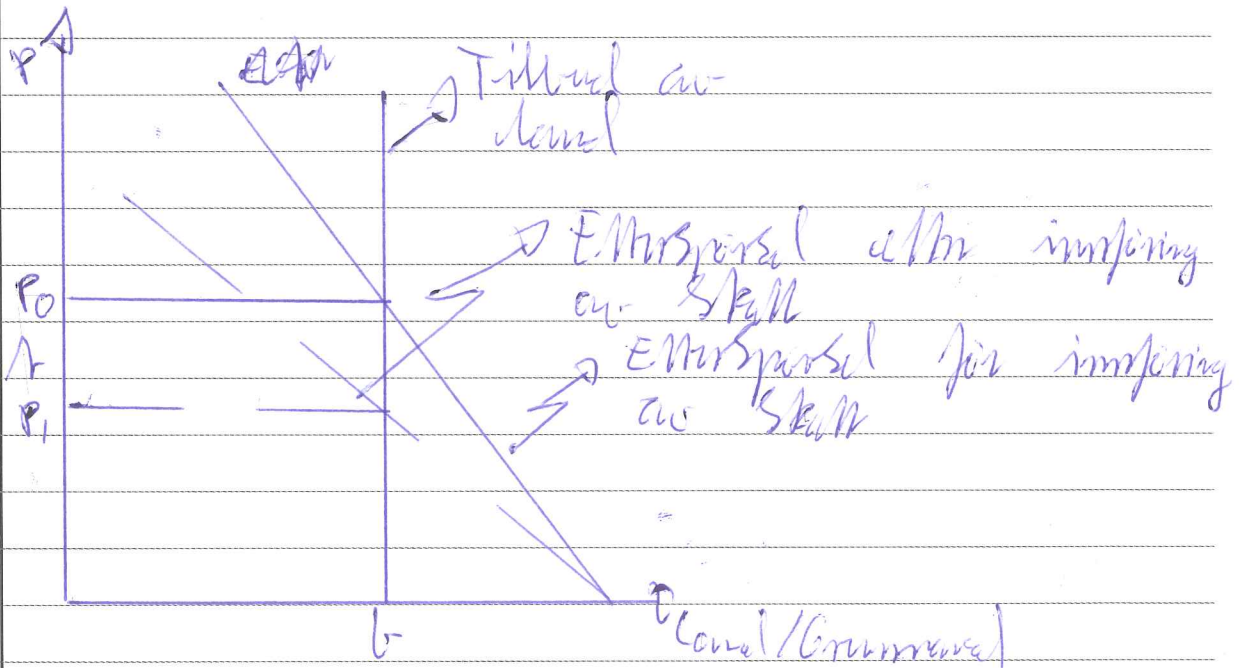 P
Tilbud av
land
Etterspørsel etter innføring
av skatt
P0
Etterspørsel før innføring
av skatt
t
P1
Land/Grunnareal